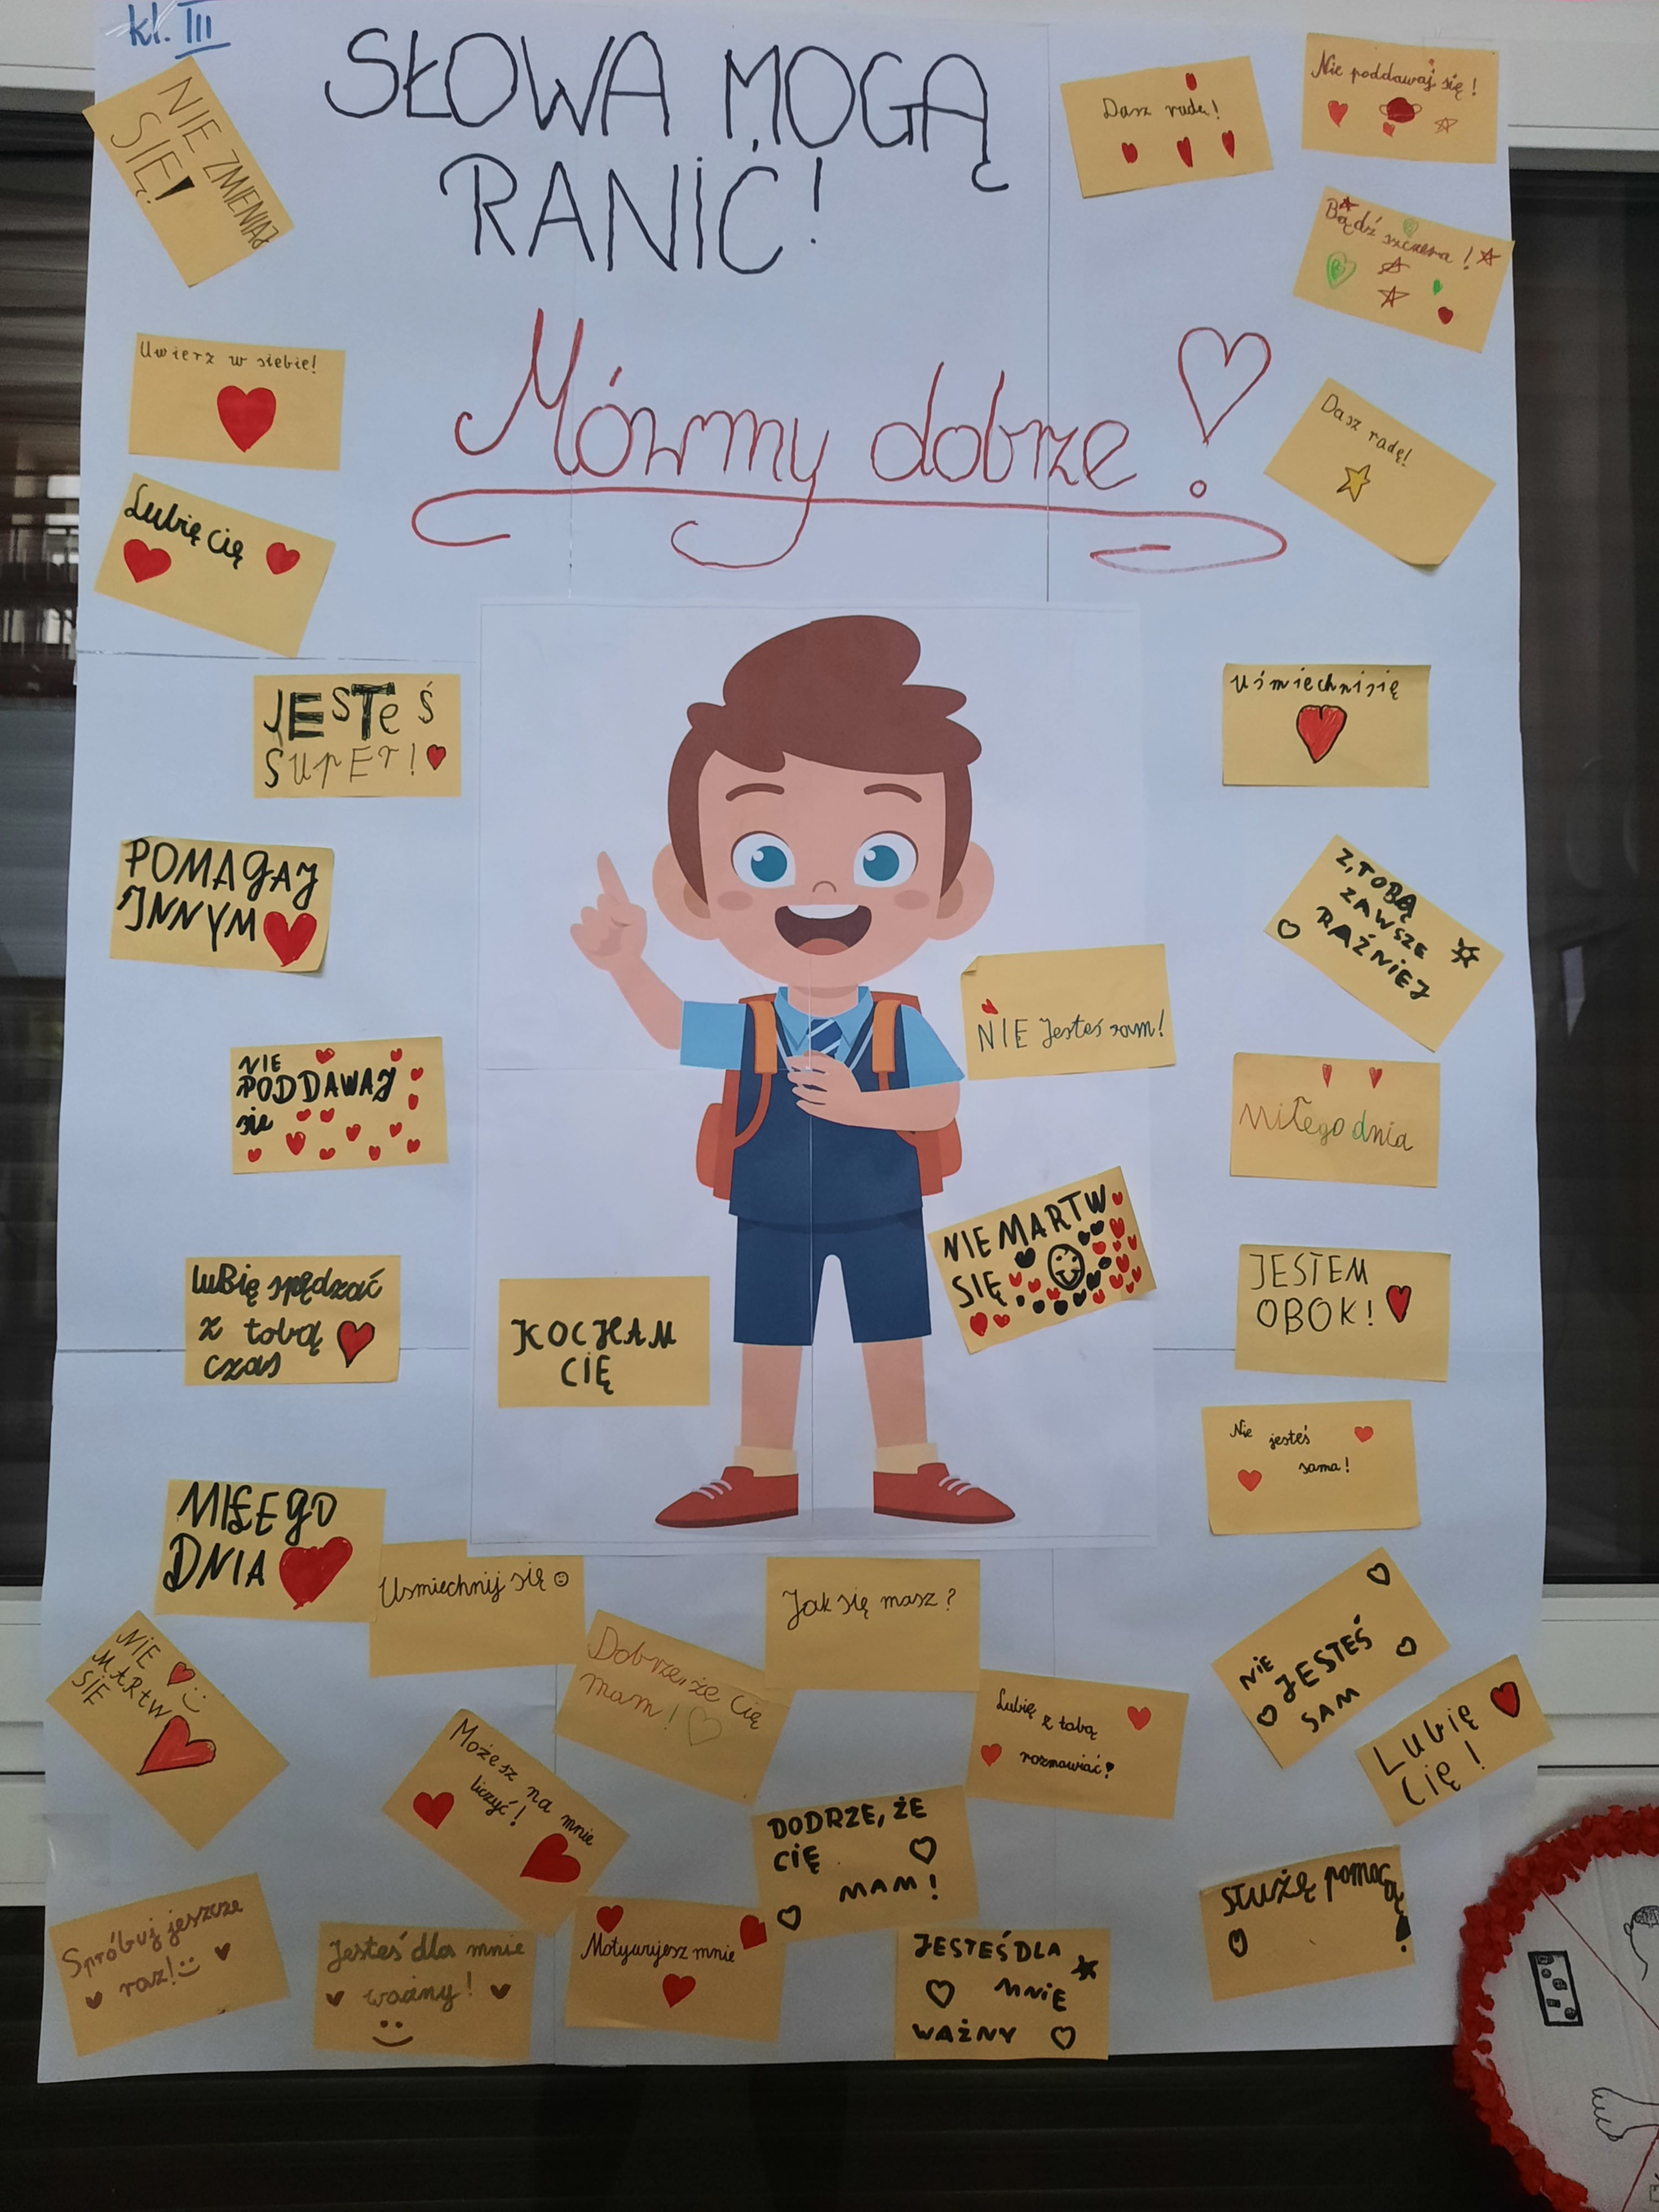 kl. III
SŁOWA MOGĄ
RANIĆ!
Mówmy dobrze!
NIE ZMIENIAJ
SIĘ!
Dasz radę!
Nie poddawaj się!
Bądź szczera!
Uwierz w siebie!
Dasz radę!
Lubię cię
JESTeŚ
SUPEr!
Uśmiechnisię
POMAGAJ
INNYM
Z,TOBĄ
ZAWSZE
RAŹNIEJ
NIE Jesteś sam!
NIE
PODDAWAJ
sie
Miłego dnia
NIE MARTW
SIĘ
LuBię spędzać
z tobą
czas
KOCHAM
CIĘ
JESTEM
OBOK!
Nie jesteś
sama!
MIŁEGO
DNIA
Usmiechnij się
Jak się masz?
NIE
JESTEŚ
SAM
NIE
MARTW
SIĘ
Dobrze, że Cię
mam!
Lubię z tobą
rozmawiać!
LUBIĘ
CIĘ!
Możesz na mnie
liczyć!
DODRZE, ŻE
CIĘ
MAM!
Służę pomocą!
Spróbuj jeszcze
raz!
Jesteś dla mnie
ważny!
Motywujesz mnie
JESTEŚ DLA
MNIE
WAŻNY